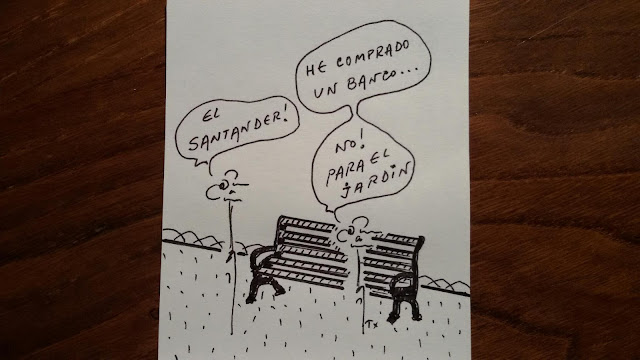 HE COMPRADO
UN BANCO...
EL
SANTANDER!
NO!
PARA EL
JARDIN
Tx